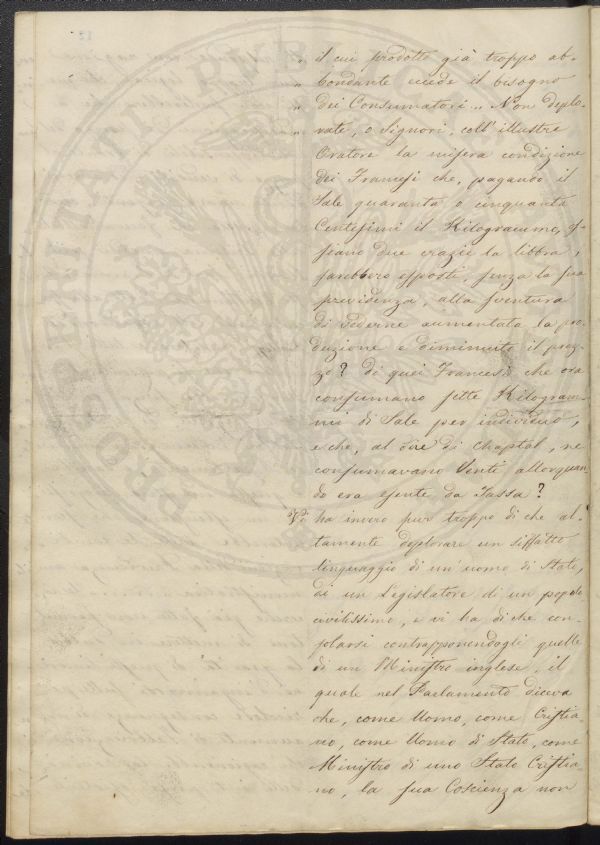 " il cui prodotto già troppo ab-
" bondante eccede il bisogno
" dei Consumatori... Non deplo-
" rate, o Signori, coll'illustre
Oratore la misera condizione
dei Francesi che, pagando il
Sale quaranta o cinquanta
Centesimi il Kilogrammo, os-
siano due crazie la libbra,
sarebbero esposti, senza la sua
previdenza, alla sventura
di vederne aumentata la pro-
duzione e diminuito il prez-
zo? di quei Francesi che ora
consumano sette Kilogram-
mi di Sale per individuo,
e che, al dire di Chaptal, ne
consumavano Venti allorquan
do era esente da Tassa?
Vi ha invero pur troppo di che al-
tamente deplorare un siffatto
linguaggio di un'uomo di Stato,
di un Legislatore di un popolo
civilissimo, e vi ha di che con-
solarsi contrapponendogli quello
di un Ministro inglese, il
quale nel Parlamento diceva
che, come Uomo, come Cristia-
no, come Uomo di Stato, come
Ministro di uno Stato Cristia-
no, la sua Coscienza non
PROSPERITATI PUBLICAE